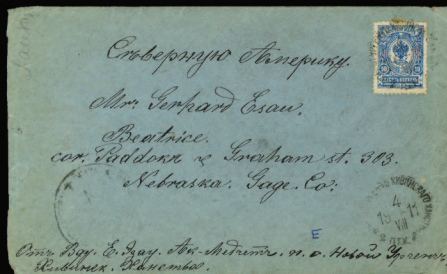 Сѣверную Америку.
Mr. Gerhard Esau.
Beatrice.
cor. Paddock & Graham st. 303.
Nebraska. Gage. Co:
4
19 VIII 11
Отъ Вду. Е. Эзау. Ак-Медетъ. п. о. Новой Ургенчъ.
Хивинск. Ханства.